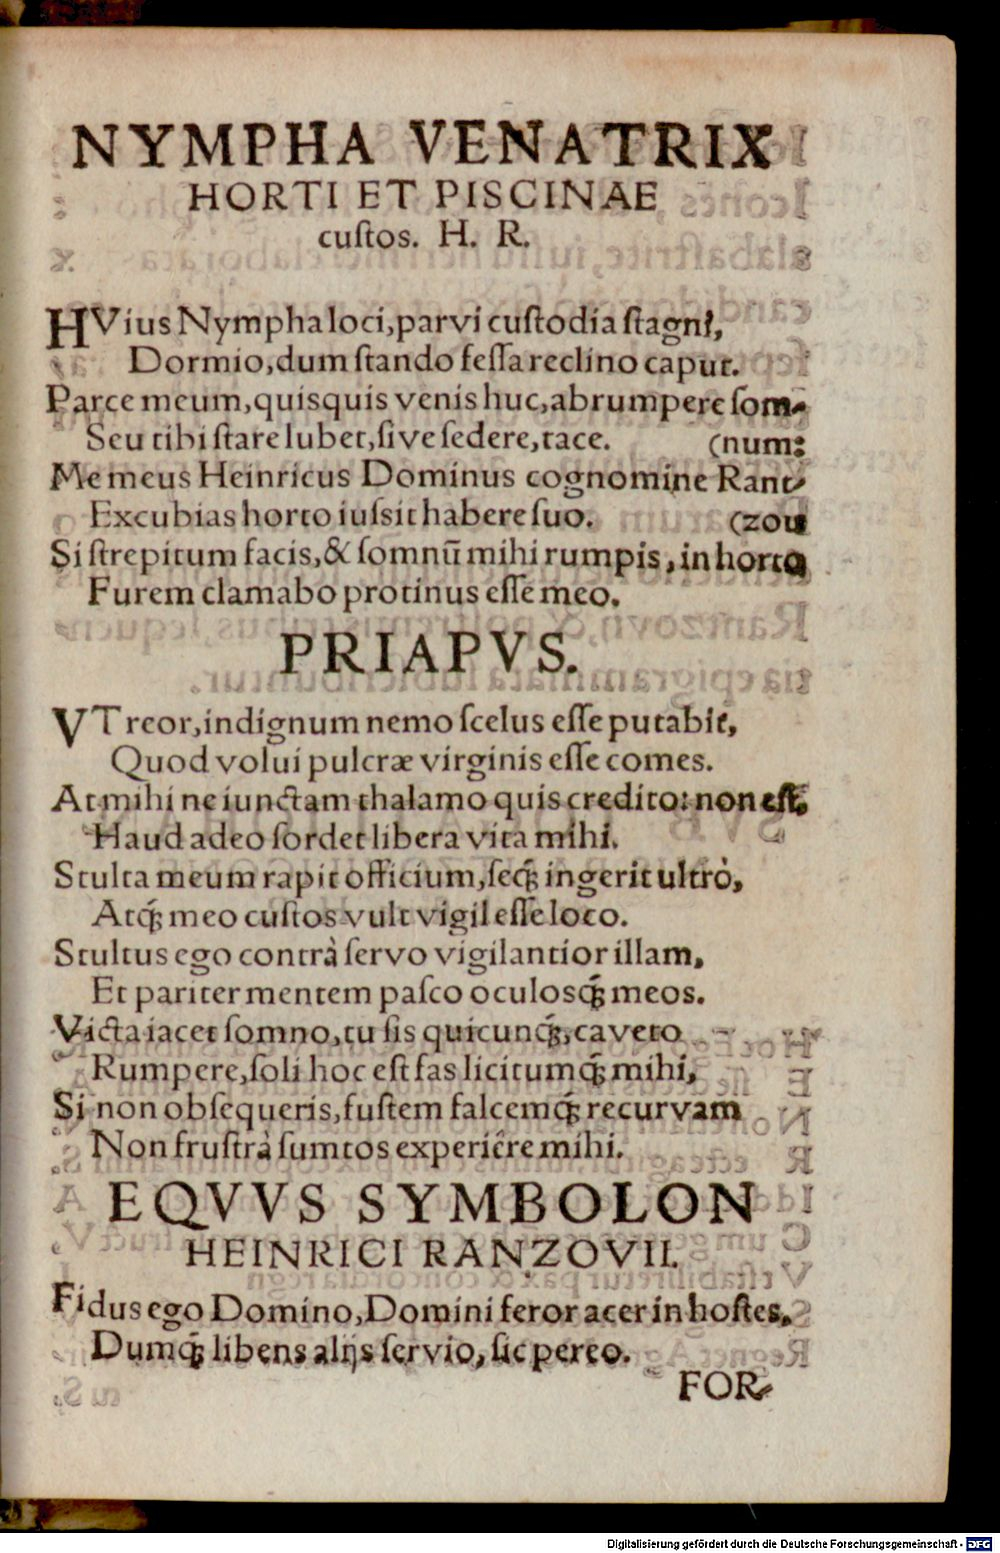 NYMPHA VENATRIX
HORTI ET PISCINAE
cuſtos. H. R.
HVius Nympha loci, parvi cuſtodia ſtagni,
Dormio, dum ſtando feſſa reclino caput.
Parce meum, quisquis venis huc, abrumpere ſom-
Seu tibi ſtare lubet, ſive ſedere, tace. (num:
Me meus Heinricus Dominus cognomine Rant-
Excubias horto iuſsit habere ſuo. (zou
Si ſtrepitum facis, & ſomnū mihi rumpis, in horto
Furem clamabo protinus eſſe meo.
PRIAPVS.
VT reor, indignum nemo ſcelus eſſe putabit,
Quod volui pulcræ virginis eſſe comes.
At mihi ne iunctam thalamo quis credito: non eſt,
Haud adeo ſordet libera vita mihi.
Stulta meum rapit officium, ſeq́; ingerit ultrò,
Atq́; meo cuſtos vult vigil eſſe loco.
Stultus ego contrà ſervo vigilantior illam,
Et pariter mentem paſco oculosq́; meos.
Victa iacet ſomno, tu ſis quicunq́;, caveto
Rumpere, ſoli hoc eſt fas licitumq́; mihi,
Si non obſequeris, fuſtem falcemq́; recurvam
Non fruſtrà ſumtos experiêre mihi.
EQVVS SYMBOLON
HEINRICI RANZOVII.
Fidus ego Domino, Domini feror acer in hoſtes,
Dumq́; libens alijs ſervio, ſic pereo.
FOR-
Digitalisierung gefördert durch die Deutsche Forschungsgemeinschaft - DFG